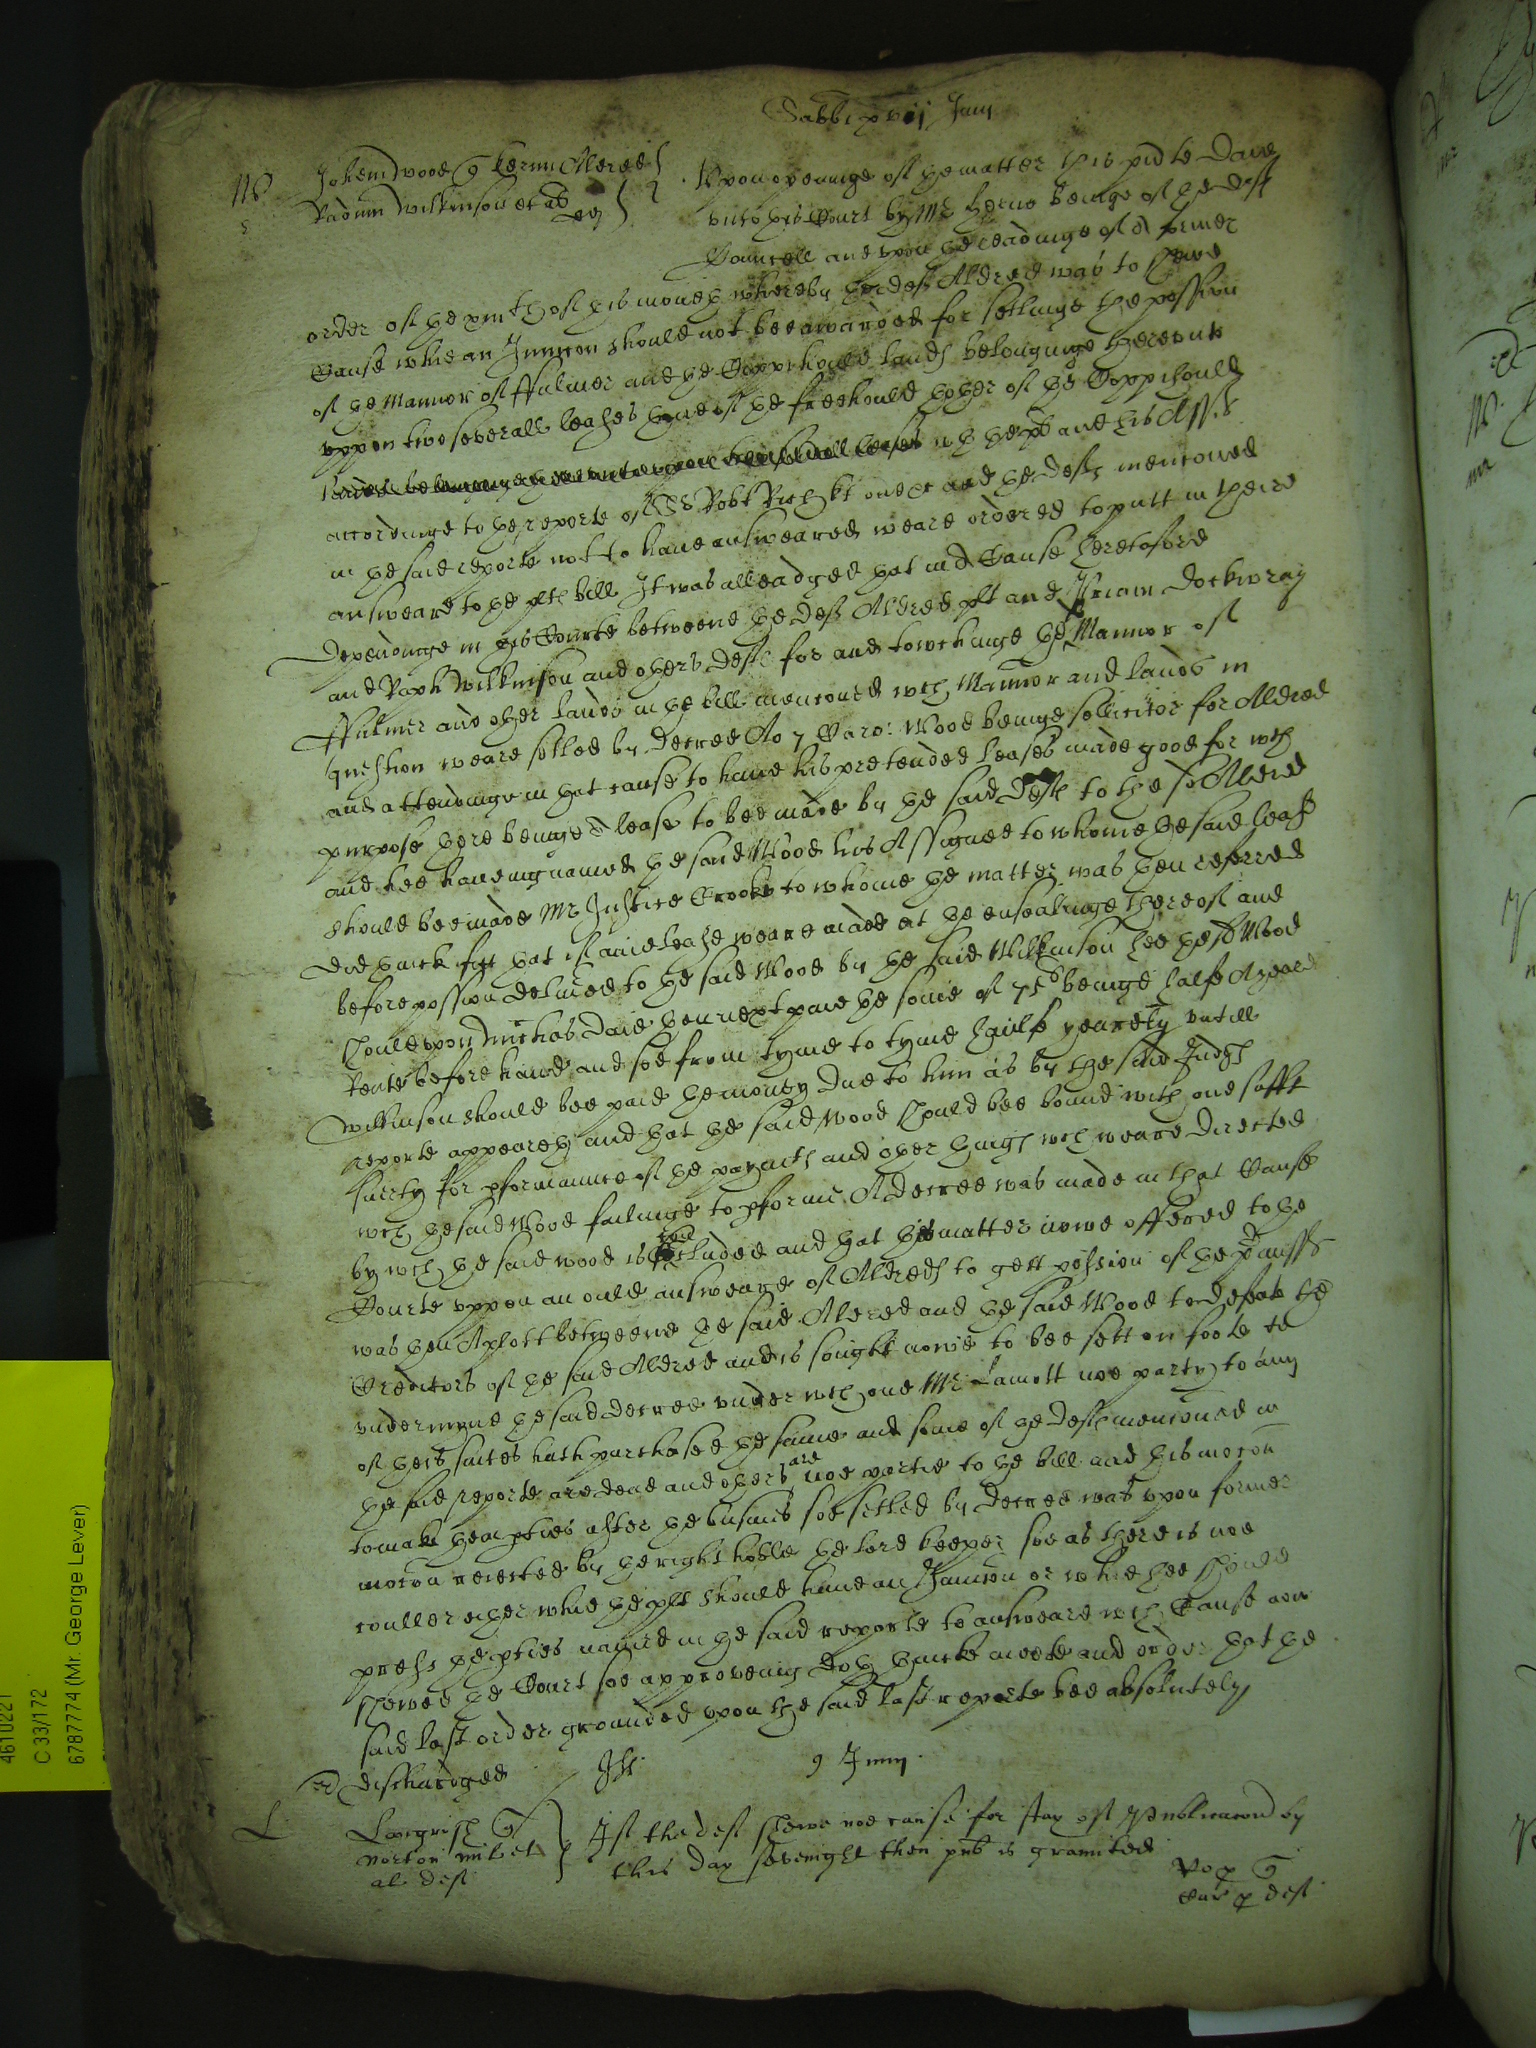 Sabbi xviij Janij
W
Johem Wood Kerim Aldred
Radum Wilkinson et al
Upon openinge of the matter this pnte daie
unto this Court by Mr Herne beinge of the defts
Councell and upon the readinge of a former
order of the xiijth of this moneth whereby the deft Aldred was to shewe
Cause whie an Iniuncon should not bee awarded for setlinge the possession
of the Mannor of Ffulmer and the Coppihould lands belonginge thereunto
uppon two severall leases thone of the freehould thother of the Coppihould
lands belonginge thereunto upon two severall leases wth the plt and his Assis
accordinge to the reporte of Sr Robt Rich kt one &c and the defts mencioned
in the said reporte not to have answeared weare ordered to putt in theire
answeare to the plts bill It was alleadged that in a Cause heretofore
dependinge in this Courte betweene the deft Aldred plt and Dockwray
and Raph Wilkinson and others defts for and towchinge the Mannor of
Ffulmer and other lands in the bill mencioned wch Mannor and lands in
question weare setled by decree Ao 7 Caro: Wood beinge sollicitor for Aldred
and attendinge in that cause to have his pretended leases made good for wch
purpose there beinge a lease to bee made by the said defts to the sd Aldred
and hee haveing named the said Wood his Assignee to whome the said lease
should bee made Mr Justice Crooke to whome the matter was then referred
did thinck fitt that if anie lease weare made at the ensealinge thereof and
before possion delivered to the said Wood by the said Wilkinson hee the sd Wood
should upon Michas daie then next paie the some of 75l beinge halfe A yeares
Rente before hand and soe from tyme to tyme halfe yearely untill
Wilkinson should bee paid the money due to him as by the said Judges
reporte appeareth and that the said Wood should bee bound with one suffit
suerty for pformance of the paymts and other things wch weare directed
wch the said Wood failinge to pforme A decree was made in that Cause
by wch the said wood is excluded and that this matter nowe offered to the
Courte uppon an ould answeare of Aldreds to gett possion of the pmisses
was then A plott betweene the said Aldred and the said Wood to defeate the
Creditors of the said Aldred and is sought nowe to bee sett on foote to
undermyne the said decree under wch one Mr Lamott noe party to any
of theis suites hath purchased the same and some of the defts mencioned in
the said reporte are dead and others are noe partie to the bill and this mocon
to make them pties after the busines soe setled by decree was upon former
mocon reiected by the right hoble the lord keeper soe as there is noe
couller either whie the plt should have an Iniuncon or whie hee should
presse the pties named in the said reporte to answeare wch Cause now
shewed the Court soe approveing doth thinke meete and order that the
said last order grounded upon the said last reporte bee absolutely
dischardged
9 Junij
L
Langrish
Norton milet et
al deft
If the deft shewe noe cause for stay of Publicacon by
this day sevenight then pub is graunted